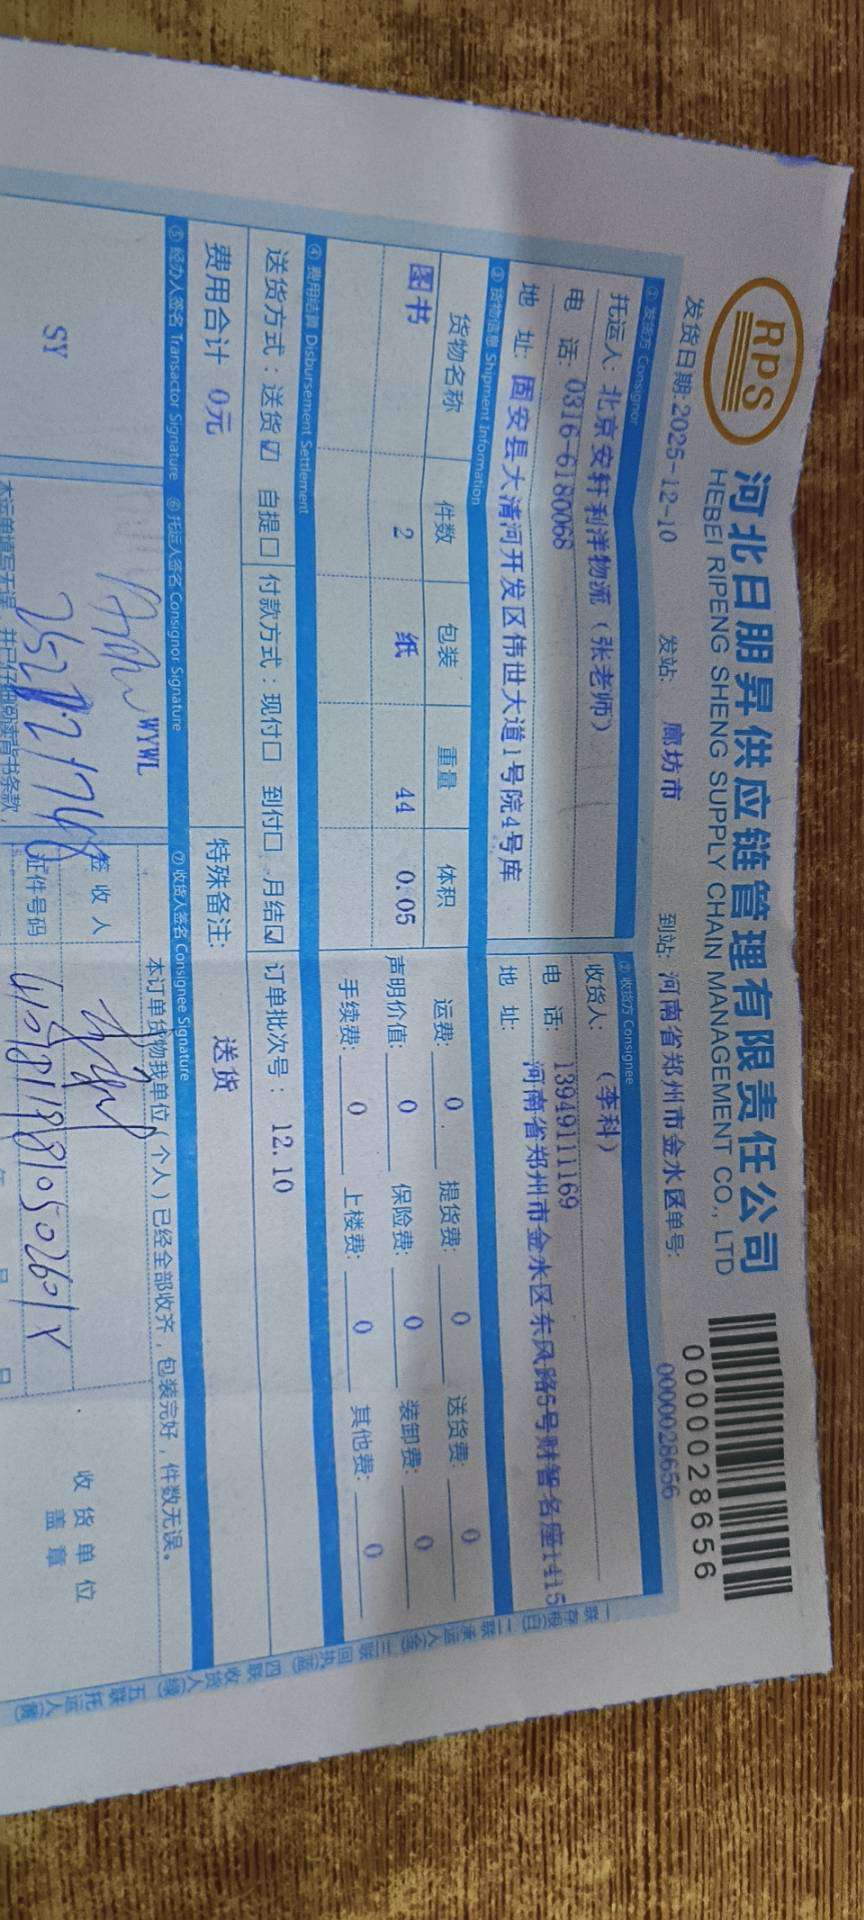 RPS
河北日朋昇供应链管理有限责任公司
HEBEI RIPENG SHENG SUPPLY CHAIN MANAGEMENT CO., LTD
0000028656
发货日期:2025-12-10 发站: 廊坊市 到站: 河南省郑州市金水区 单号: 0000028656
发货方 Consignor
托运人: 北京安轩利洋物流(张老师)
电 话: 0316-6180068
地 址: 固安县大清河开发区伟世大道1号院4号库
② 收货方 Consignee
收货人: (李科)
电 话: 13949111169
地 址: 河南省郑州市金水区东风路5号财智名座1415
③ 货物信息 Shipment Information
货物名称 件数 包装 重量 体积
图书 2 纸 44 0.05
运费: 0 提货费: 0 送货费: 0
声明价值: 0 保险费: 0 装卸费: 0
手续费: 0 上楼费: 0 其他费: 0
④ 费用结算 Disbursement Settlement
送货方式: 送货☑ 自提□ 付款方式: 现付□ 到付□ 月结☑ 订单批次号: 12.10
费用合计 0元 特殊备注: 送货
⑤ 经办人签名 Transactor Signature
SY
⑥ 托运人签名 Consignor Signature
WYWL
本运单填写无误,并已仔细阅读背书条款,
⑦ 收货人签名 Consignee Signature
本订单货物我单位(个人)已经全部收齐,包装完好,件数无误。
签 收 人
证件号码:
收 货 单 位
盖 章
年 月 日
一联存根(白) 二联承运人(金) 三联回执(蓝) 四联收货人(绿) 五联托运人(黄)